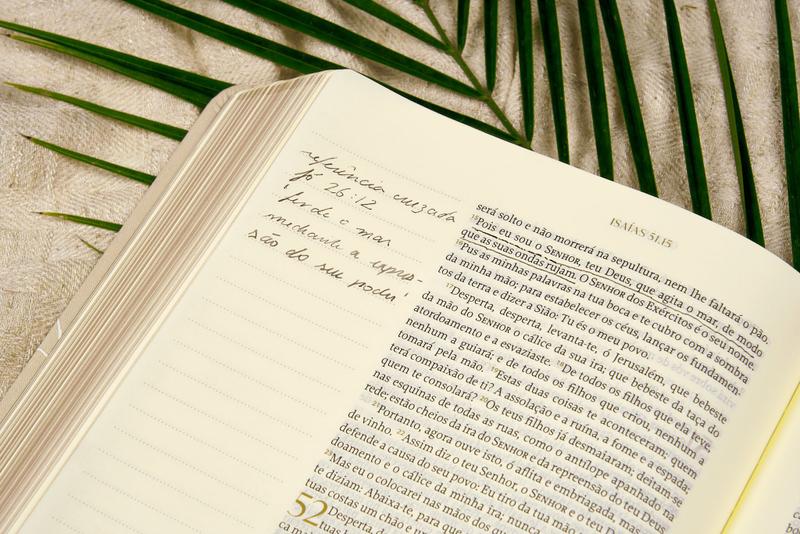 referência cruzada
Jó 26:12
fende o mar
mediante a expres-
são do seu poder!
ISAÍAS 51.15
será solto e não morrerá na sepultura, nem lhe faltará o pão.
15Pois eu sou o SENHOR, teu Deus, que agita o mar, de modo
que as suas ondas rujam. O SENHOR dos Exércitos é o seu nome.
16Pus as minhas palavras na tua boca e te cubro com a sombra
da minha mão; para estabelecer os céus, lançar os fundamen-
tos da terra e dizer a Sião: Tu és o meu povo.
17Desperta, desperta, levanta-te, ó Jerusalém, que bebeste
da mão do SENHOR o cálice da sua ira; que bebeste da taça do
atordoamento e a esvaziaste. 18De todos os filhos que ela teve,
nenhum a guiará; e de todos os filhos que criou, nenhum a
tomará pela mão. 19Estas duas coisas te aconteceram; quem
terá compaixão de ti? A assolação e a ruína, a fome e a espada;
quem te consolará? 20Os teus filhos já desmaiaram; deitam-se
nas esquinas de todas as ruas, como o antílope apanhado na
rede; estão cheios da ira do SENHOR e da repreensão do teu Deus.
21Portanto, agora ouve isso, ó aflita e embriagada, mas
de vinho. 22Assim diz o teu Senhor, o SENHOR e o teu
defende a causa do seu povo: Eu tiro da tua mão
doamento e o cálice da minha ira; nunca
23Mas eu o colocarei nas mãos dos
te diziam: Abaixa-te, para que
tuas costas um chão e
52 Desperta,
tuas